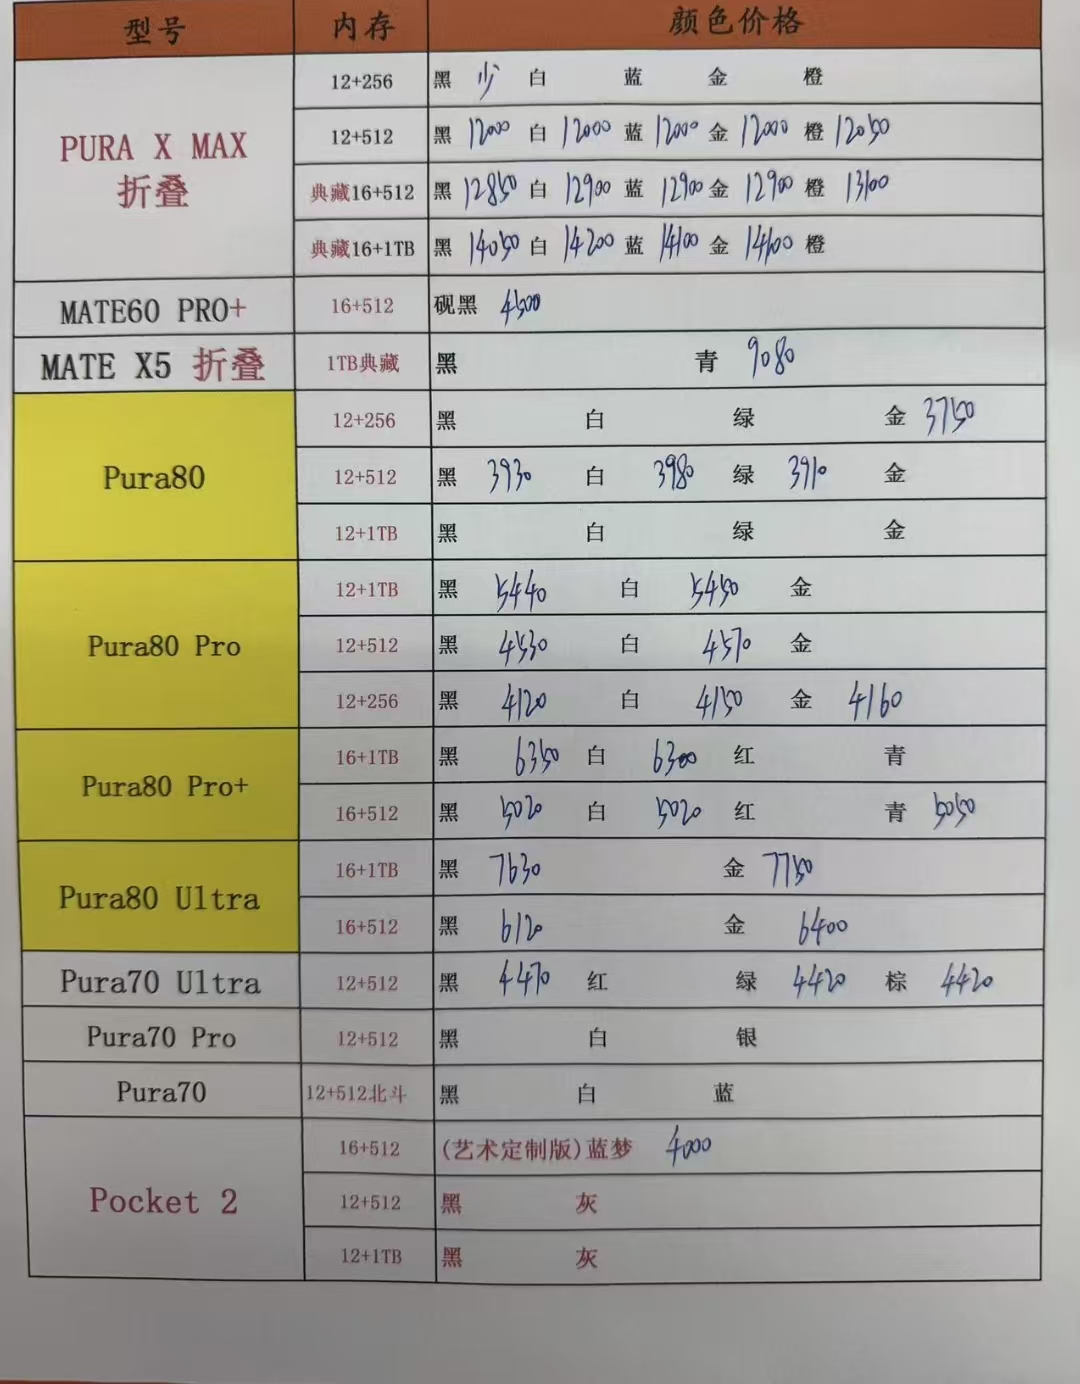 型号 内存 颜色价格
PURA X MAX 折叠
12+256 黑 少 白 蓝 金 橙
12+512 黑 12000 白 12000 蓝 12000 金 12000 橙 12050
典藏16+512 黑 12850 白 12900 蓝 12900 金 12900 橙 13100
典藏16+1TB 黑 14050 白 14200 蓝 14100 金 14100 橙
MATE60 PRO+ 16+512 砚黑 4500
MATE X5 折叠 1TB典藏 黑 青 9080
Pura80
12+256 黑 白 绿 金 3750
12+512 黑 3930 白 3980 绿 3910 金
12+1TB 黑 白 绿 金
Pura80 Pro
12+1TB 黑 5440 白 5450 金
12+512 黑 4530 白 4570 金
12+256 黑 4120 白 4150 金 4160
Pura80 Pro+
16+1TB 黑 6350 白 6300 红 青
16+512 黑 5020 白 5020 红 青 5050
Pura80 Ultra
16+1TB 黑 7630 金 7750
16+512 黑 6120 金 6400
Pura70 Ultra 12+512 黑 4470 红 绿 4420 棕 4420
Pura70 Pro 12+512 黑 白 银
Pura70 12+512北斗 黑 白 蓝
Pocket 2
16+512 (艺术定制版)蓝梦 4000
12+512 黑 灰
12+1TB 黑 灰